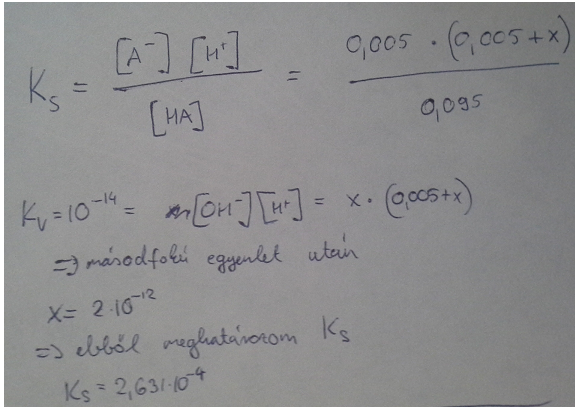 K_S = [A⁻] [H⁺] / [HA] = 0,005 · (0,005+x) / 0,095
K_V = 10⁻¹⁴ = [OH⁻][H⁺] = x · (0,005+x)
=> másodfokú egyenlet után
x = 2·10⁻¹²
=> ebből meghatározom K_S
K_S = 2,631·10⁻⁴